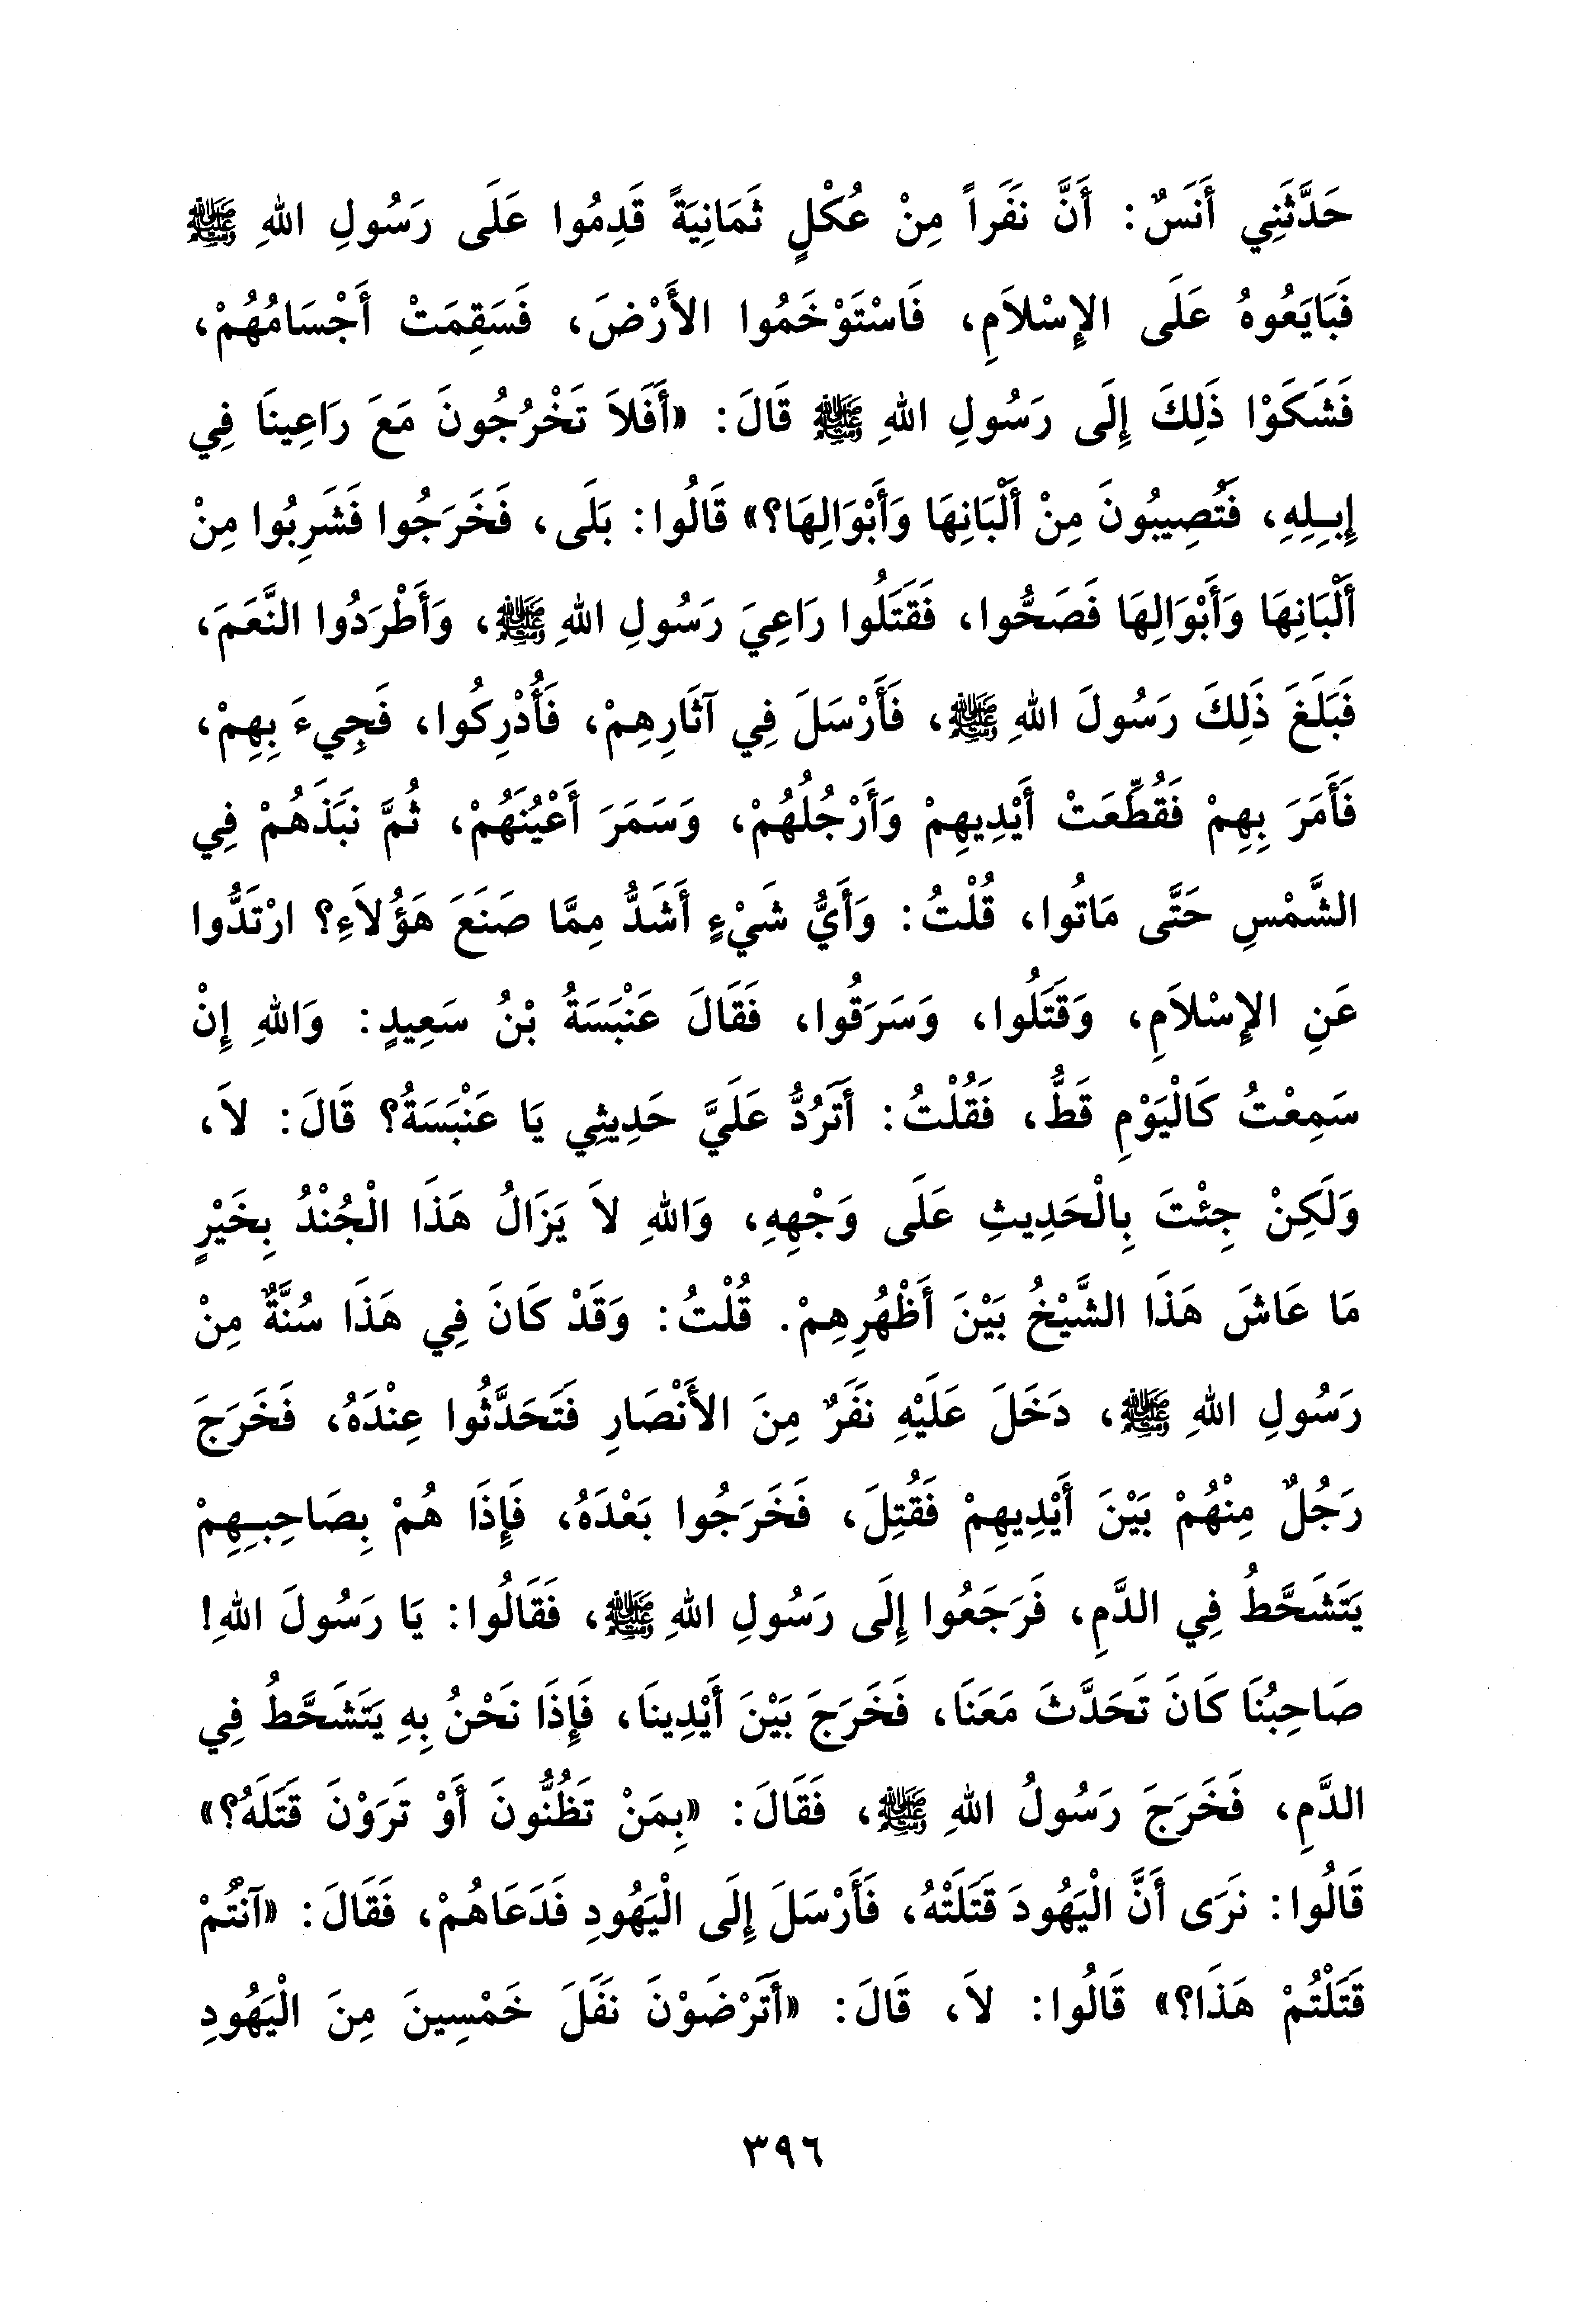 حَدَّثَنِي أَنَسٌ: أَنَّ نَفَراً مِنْ عُكْلٍ ثَمَانِيَةً قَدِمُوا عَلَى رَسُولِ اللهِ ﷺ
فَبَايَعُوهُ عَلَى الإِسْلاَمِ، فَاسْتَوْخَمُوا الأَرْضَ، فَسَقِمَتْ أَجْسَامُهُمْ،
فَشَكَوْا ذَلِكَ إِلَى رَسُولِ اللهِ ﷺ قَالَ: «أَفَلاَ تَخْرُجُونَ مَعَ رَاعِينَا فِي
إِبِلِهِ، فَتُصِيبُونَ مِنْ أَلْبَانِهَا وَأَبْوَالِهَا؟» قَالُوا: بَلَى، فَخَرَجُوا فَشَرِبُوا مِنْ
أَلْبَانِهَا وَأَبْوَالِهَا فَصَحُّوا، فَقَتَلُوا رَاعِيَ رَسُولِ اللهِ ﷺ، وَأَطْرَدُوا النَّعَمَ،
فَبَلَغَ ذَلِكَ رَسُولَ اللهِ ﷺ، فَأَرْسَلَ فِي آثَارِهِمْ، فَأُدْرِكُوا، فَجِيءَ بِهِمْ،
فَأَمَرَ بِهِمْ فَقُطِّعَتْ أَيْدِيهِمْ وَأَرْجُلُهُمْ، وَسَمَرَ أَعْيُنَهُمْ، ثُمَّ نَبَذَهُمْ فِي
الشَّمْسِ حَتَّى مَاتُوا، قُلْتُ: وَأَيُّ شَيْءٍ أَشَدُّ مِمَّا صَنَعَ هَؤُلاَءِ؟ ارْتَدُّوا
عَنِ الإِسْلاَمِ، وَقَتَلُوا، وَسَرَقُوا، فَقَالَ عَنْبَسَةُ بْنُ سَعِيدٍ: وَاللهِ إِنْ
سَمِعْتُ كَالْيَوْمِ قَطُّ، فَقُلْتُ: أَتَرُدُّ عَلَيَّ حَدِيثِي يَا عَنْبَسَةُ؟ قَالَ: لاَ،
وَلَكِنْ جِئْتَ بِالْحَدِيثِ عَلَى وَجْهِهِ، وَاللهِ لاَ يَزَالُ هَذَا الْجُنْدُ بِخَيْرٍ
مَا عَاشَ هَذَا الشَّيْخُ بَيْنَ أَظْهُرِهِمْ. قُلْتُ: وَقَدْ كَانَ فِي هَذَا سُنَّةٌ مِنْ
رَسُولِ اللهِ ﷺ، دَخَلَ عَلَيْهِ نَفَرٌ مِنَ الأَنْصَارِ فَتَحَدَّثُوا عِنْدَهُ، فَخَرَجَ
رَجُلٌ مِنْهُمْ بَيْنَ أَيْدِيهِمْ فَقُتِلَ، فَخَرَجُوا بَعْدَهُ، فَإِذَا هُمْ بِصَاحِبِهِمْ
يَتَشَحَّطُ فِي الدَّمِ، فَرَجَعُوا إِلَى رَسُولِ اللهِ ﷺ، فَقَالُوا: يَا رَسُولَ اللهِ!
صَاحِبُنَا كَانَ تَحَدَّثَ مَعَنَا، فَخَرَجَ بَيْنَ أَيْدِينَا، فَإِذَا نَحْنُ بِهِ يَتَشَحَّطُ فِي
الدَّمِ، فَخَرَجَ رَسُولُ اللهِ ﷺ، فَقَالَ: «بِمَنْ تَظُنُّونَ أَوْ تَرَوْنَ قَتَلَهُ؟»
قَالُوا: نَرَى أَنَّ الْيَهُودَ قَتَلَتْهُ، فَأَرْسَلَ إِلَى الْيَهُودِ فَدَعَاهُمْ، فَقَالَ: «آنْتُمْ
قَتَلْتُمْ هَذَا؟» قَالُوا: لاَ، قَالَ: «أَتَرْضَوْنَ نَفَلَ خَمْسِينَ مِنَ الْيَهُودِ
٣٩٦